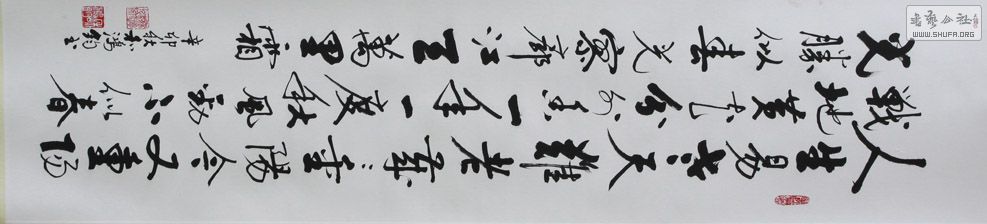 人生易老天難老歲〻重陽今又重陽
戰地黃花分外香一年一度秋風勁不似春
光勝似春光寥廓江天萬里霜
辛卯秋
书艺公社
WWW.SHUFA.ORG